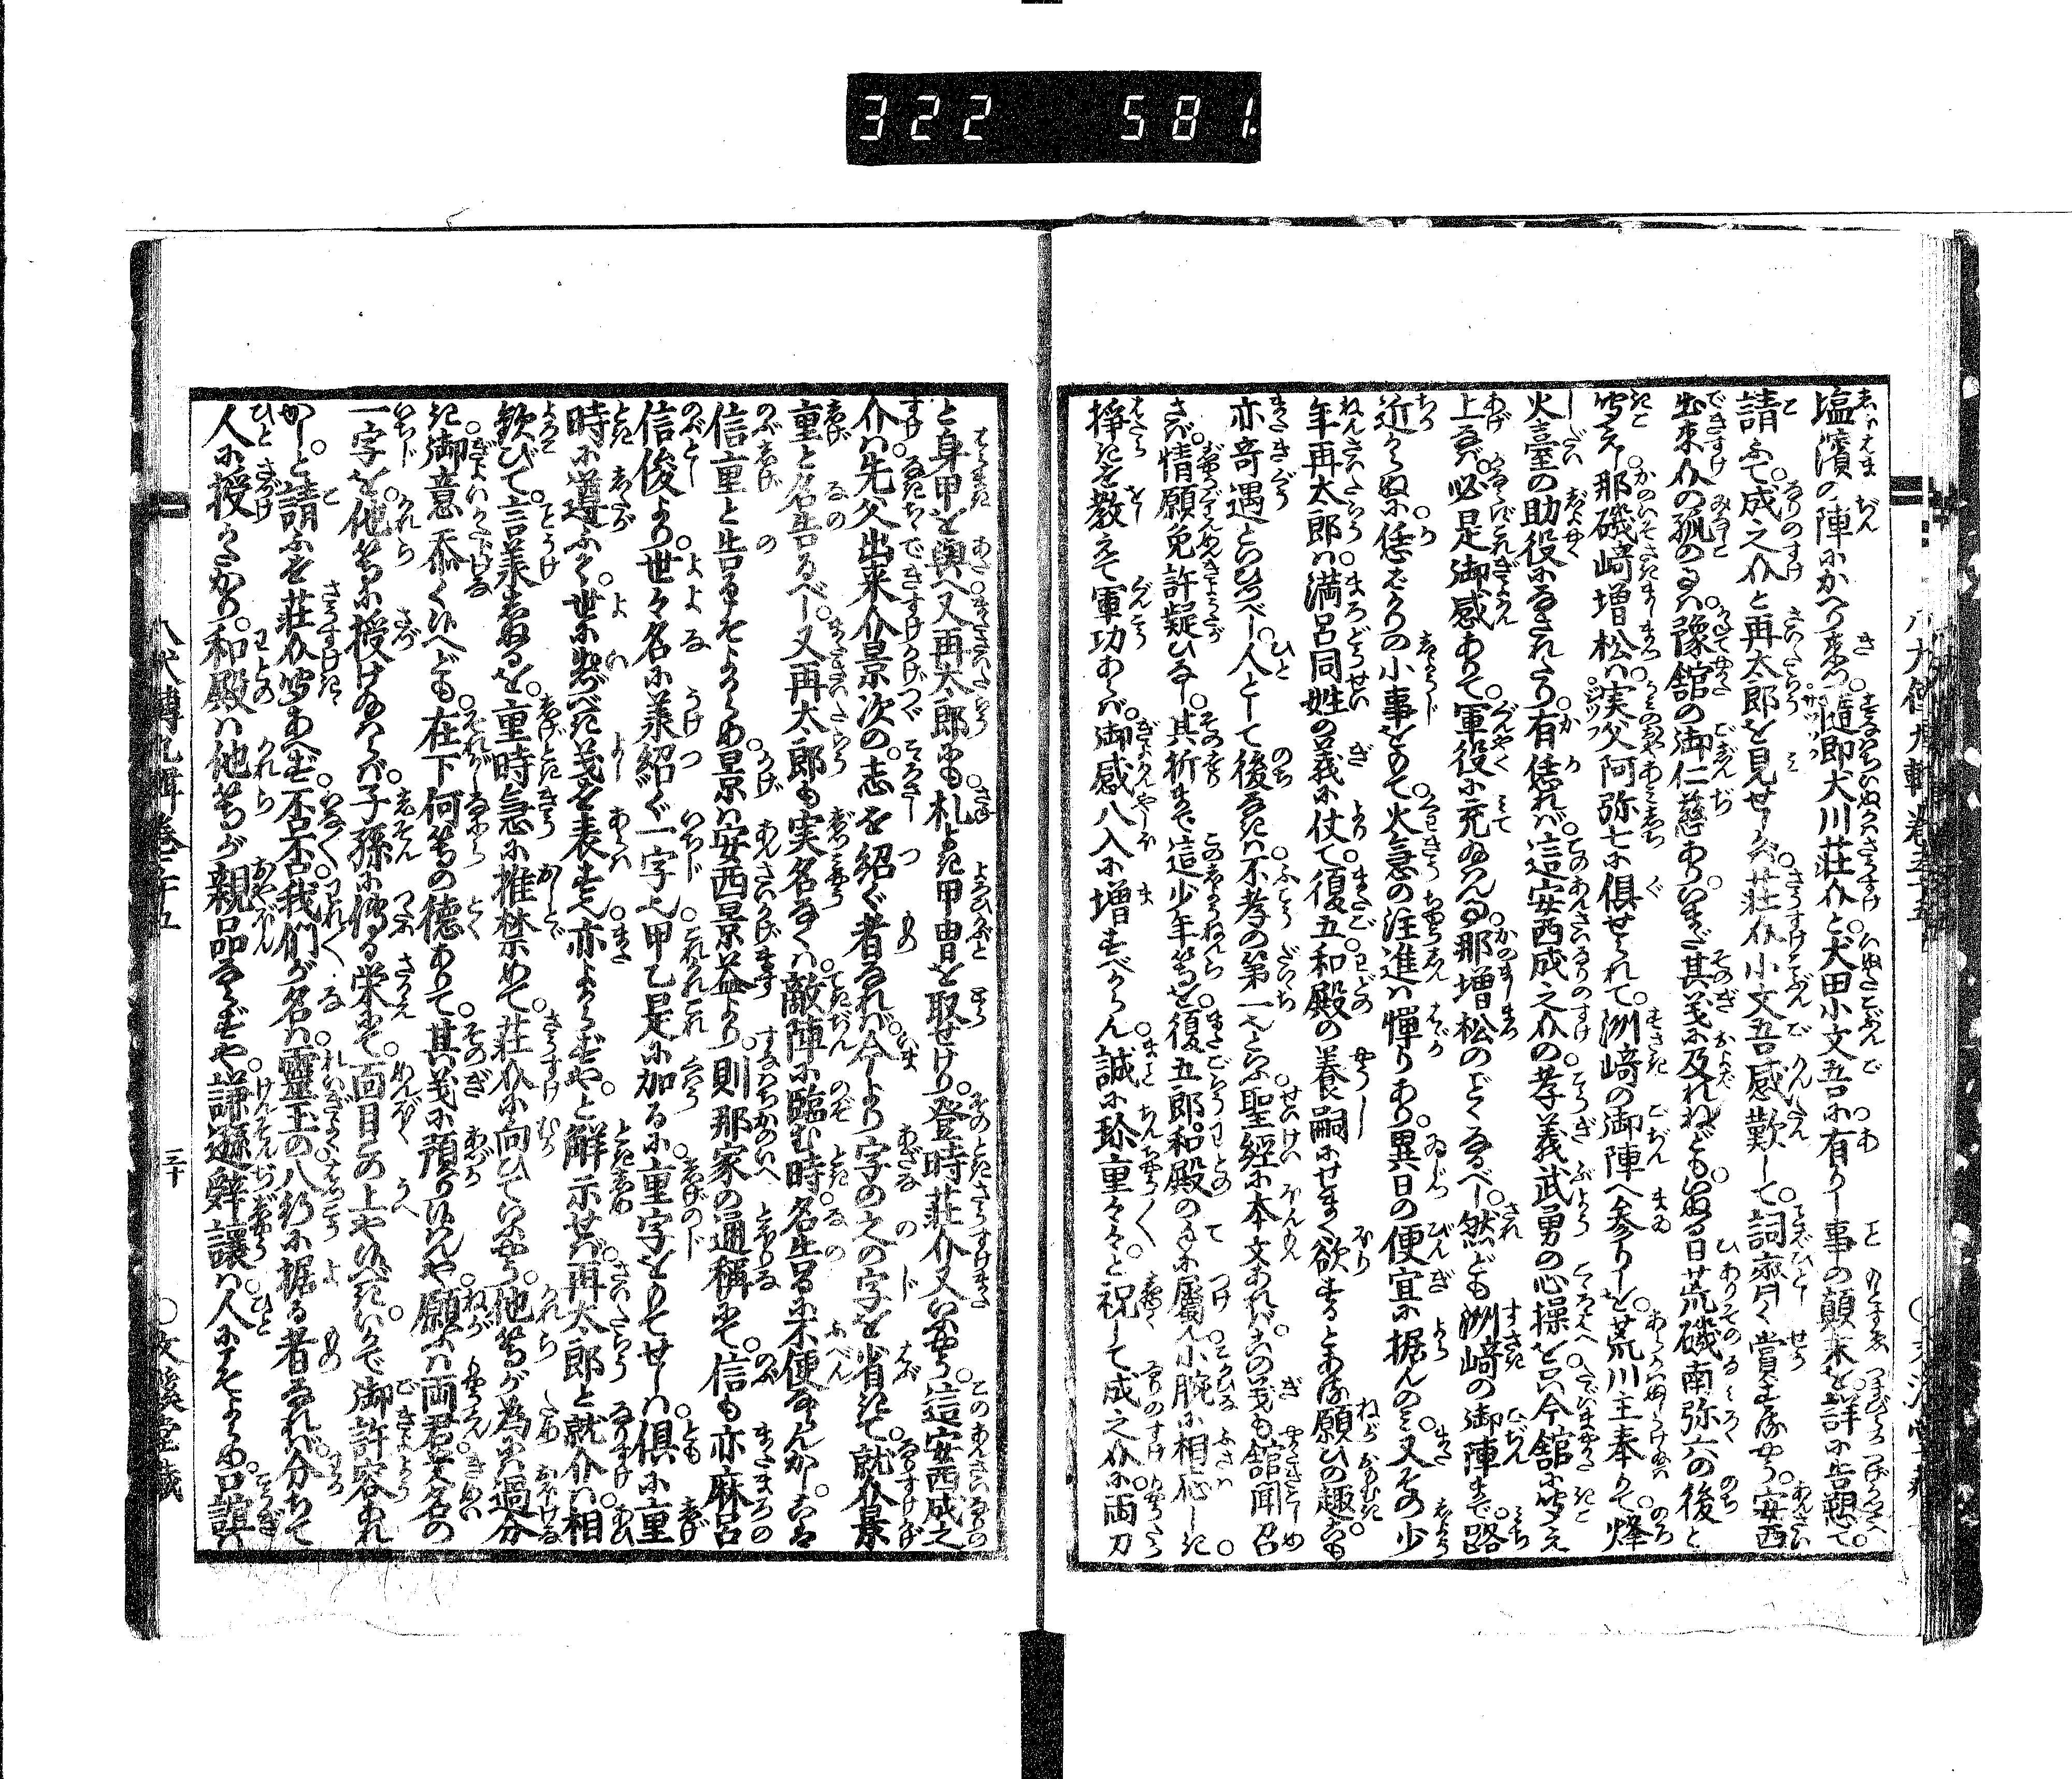 322 581.
塩濱の陣にかへり来つ。随即犬川荘介と。犬田小文吾に有りし事の顛末を。詳に告懇て。
請ふて。成之介と再太郎を見せしかバ。荘介小文吾感歎して。詞齊く賞するやう。安西
出来介の孤のるハ。豫舘の御仁慈あり。いまだ其義に及れねども。いぬる日荒磯南弥六の後と
聞えし。那磯﨑増松ハ。実父阿弥七に倶せられて。洲﨑の御陣へ参りしを。荒川主奉りて。烽
火臺の助役にせられたり。有恁れバ。這安西成之介の孝義武勇の心操を。今舘に聞え
上なバ。必是御感ありて。軍役に充給んる。那増松のごとくなるべし。然ども洲﨑の御陣まで。路
近からぬに。恁ばかりの小事をもて。火急の注進ハ憚りあり。異日の便宜に据んのミ。又その少
年再太郎ハ。満呂同姓の義に仗て。復五和殿の養嗣にせまく欲するとある願ひの趣。是も
亦奇遇といひつべし。人として後なきハ。不孝の第一也といふ。聖經に本文あれバ。この義も舘聞召
さバ。情願免許疑ひなし。其折まで這少年等を。復五郎。和殿の手に屬て。小腕に相応しき。
挊ぎを教えて軍功あらバ。御感八入に増すべからん。誠に珎重々々。と祝して成之介に。両刀
と身甲を與へ又再太郎にも。札よき甲冑を取せけり。登時荘介又いふやう。這安西成之
介ハ。先父出来介景次の。志を紹ぐ者なれバ。今より字の之の字を省きて。就介景
重と名告るべし。又再太郎も実名なくハ。敵陣に臨む時。名告るに不便ならんかし。是ハ
信重と告るこそよからめ。景ハ安西景益より。則那家の通稱にて。信も亦麻呂
信俊より。世々名に羕紹ぐ一字也。甲乙是に加るに。重字をもてせしハ。倶に重
時に遵ふて。世に出べき義を表す。亦よからずや。と解示せバ。再太郎と就介ハ。相
歓びて。言羕しぬるを。重時急に推禁めて。荘介に向ひていふやう。他等が為にハ過分
き。御意忝く候へども。在下何等の徳ありて。其義に預り候んや。願ふハ両君。名の
一字を。他等に授け給ハらバ。子孫に傳る栄にて。面目この上や候べき。いかで御許容あれ
かし。と請ふを荘介。聞あへず。否々。我們が名ハ。靈玉の八行に据る者なれバ。分ちて
人に授けがたかり。和殿ハ他等が親品ならずや。謙遜辭讓ハ人にこそよらめ。この議ハ
八犬傳九輯 巻三十五
三十
○文溪堂藏